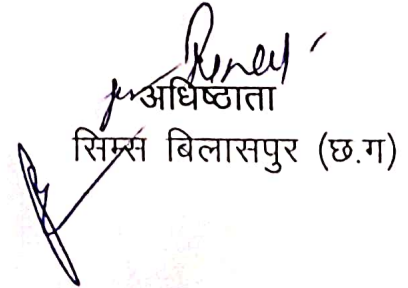 अधिष्ठाता
सिम्स बिलासपुर (छ.ग)